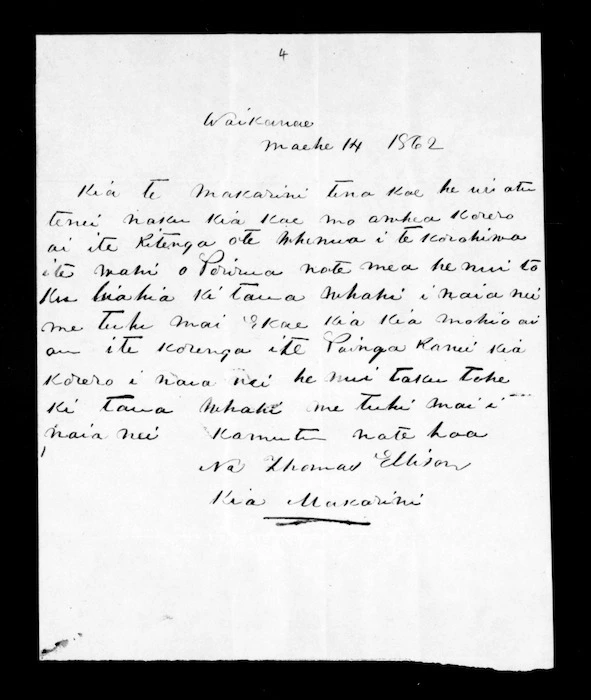 4
Waikanae
Maehe 14 1862
Kia te Makarini tena koe he ui atu
tenei naku kia koe mo awhea korero
ai ite Ritenga ote Whenua i te korohiwa
ite wahi o Porirua note mea he nui to
ku hiahia ki taua whahi i naia nei
me tuhi mai Ekoe kia kia mohio ai
au ite korenga ite Painga Ranei kia
korero i naia nei he nui taku tohe
ki taua Whahi me tuhi mai i
naia nei Kamutu note hoa
Na Thomas Ellison
Kia Makarini